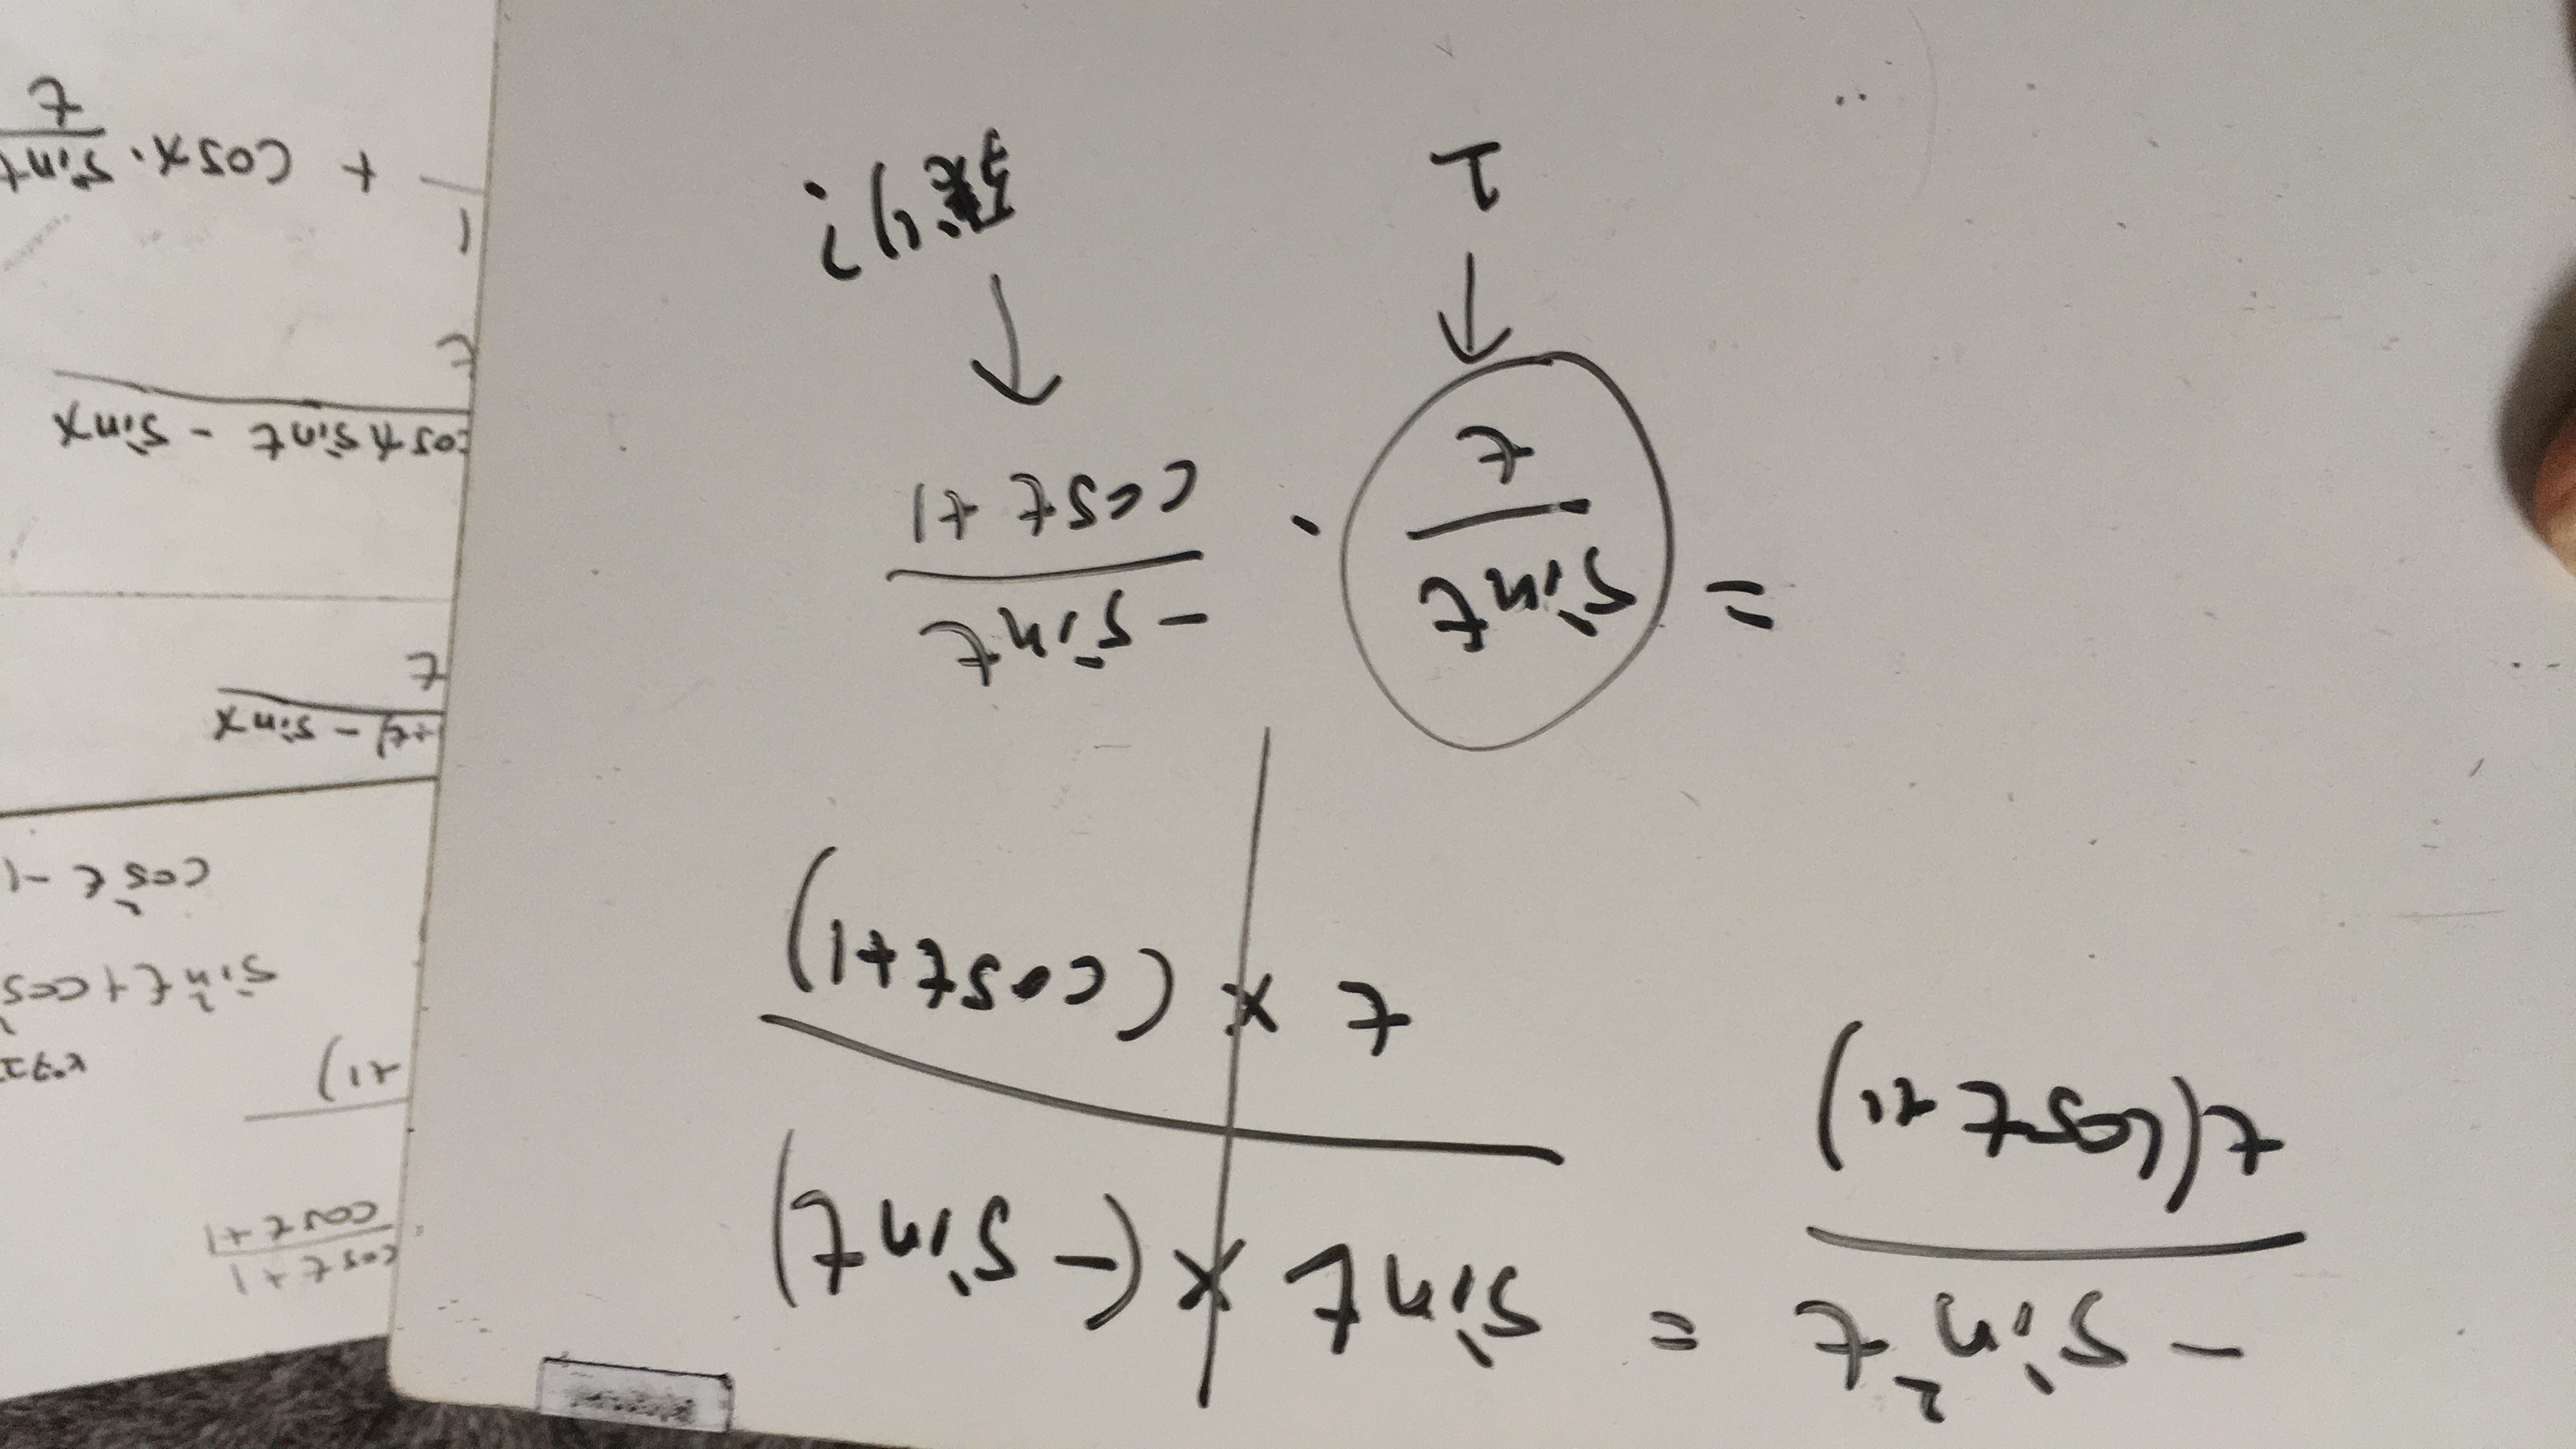 - sin²t = sint × (- sint)
t(cost+1) t × (cost+1)
= sint · - sint
t cost+1
↑ ↑
1
cost+1
cost+1
+1)
sin²t + cos
cos²t - 1
+t) - sinx
t
cosx sint - sinx
t
+ cosx · sint
t